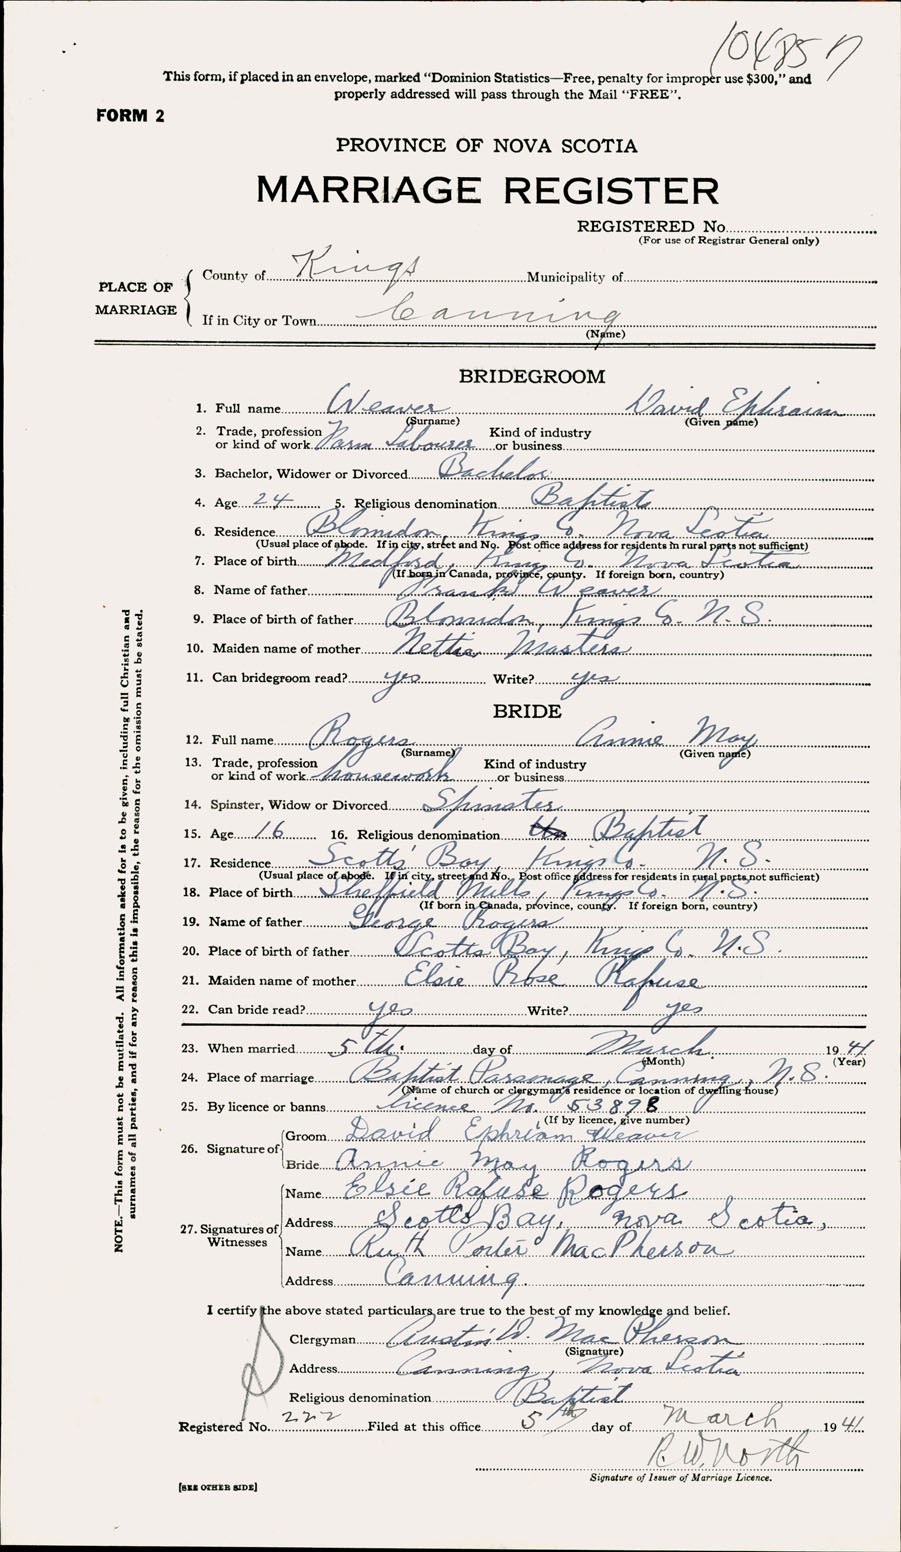 104857
This form, if placed in an envelope, marked "Dominion Statistics—Free, penalty for improper use $300," and
properly addressed will pass through the Mail "FREE".
FORM 2
PROVINCE OF NOVA SCOTIA
MARRIAGE REGISTER
REGISTERED No.
(For use of Registrar General only)
PLACE OF MARRIAGE
County of Kings Municipality of
If in City or Town Canning
(Name)
BRIDEGROOM
1. Full name Weaver David Ephraim
(Surname) (Given name)
2. Trade, profession or kind of work Farm Labourer Kind of industry or business
3. Bachelor, Widower or Divorced Bachelor
4. Age 24 5. Religious denomination Baptist
6. Residence Blomidon, Kings Co. Nova Scotia
(Usual place of abode. If in city, street and No. Post office address for residents in rural parts not sufficient)
7. Place of birth Medford, Kings Co. Nova Scotia
(If born in Canada, province, county. If foreign born, country)
8. Name of father Frank Weaver
9. Place of birth of father Blomidon, Kings Co. N.S.
10. Maiden name of mother Nettie Masters
11. Can bridegroom read? yes Write? yes
BRIDE
12. Full name Rogers Annie May
(Surname) (Given name)
13. Trade, profession or kind of work housework Kind of industry or business
14. Spinster, Widow or Divorced Spinster
15. Age 16 16. Religious denomination Baptist
17. Residence Scotts Bay, Kings Co. N.S.
(Usual place of abode. If in city, street and No. Post office address for residents in rural parts not sufficient)
18. Place of birth Sheffield Mills, Kings Co. N.S.
(If born in Canada, province, county. If foreign born, country)
19. Name of father George Rogers
20. Place of birth of father Scotts Bay, Kings Co. N.S.
21. Maiden name of mother Elsie Rose Rafuse
22. Can bride read? yes Write? yes
23. When married 5th. day of March. 1941
(Month) (Year)
24. Place of marriage Baptist Parsonage, Canning, N.S.
(Name of church or clergyman's residence or location of dwelling house)
25. By licence or banns licence No. 53898
(If by licence, give number)
26. Signature of
Groom David Ephriam Weaver
Bride Annie May Rogers
27. Signatures of Witnesses
Name Elsie Rafuse Rogers
Address Scotts Bay, Nova Scotia,
Name Ruth Porter MacPherson
Address Canning.
I certify the above stated particulars are true to the best of my knowledge and belief.
Clergyman Austin W. MacPherson
(Signature)
Address Canning, Nova Scotia
Religious denomination Baptist
Registered No. 222 Filed at this office 5th day of March 1941.
R. W. North
Signature of Issuer of Marriage Licence.
[SEE OTHER SIDE]
NOTE.—This form must not be mutilated. All information asked for is to be given, including full Christian and
surnames of all parties, and if for any reason this is impossible, the reason for the omission must be stated.